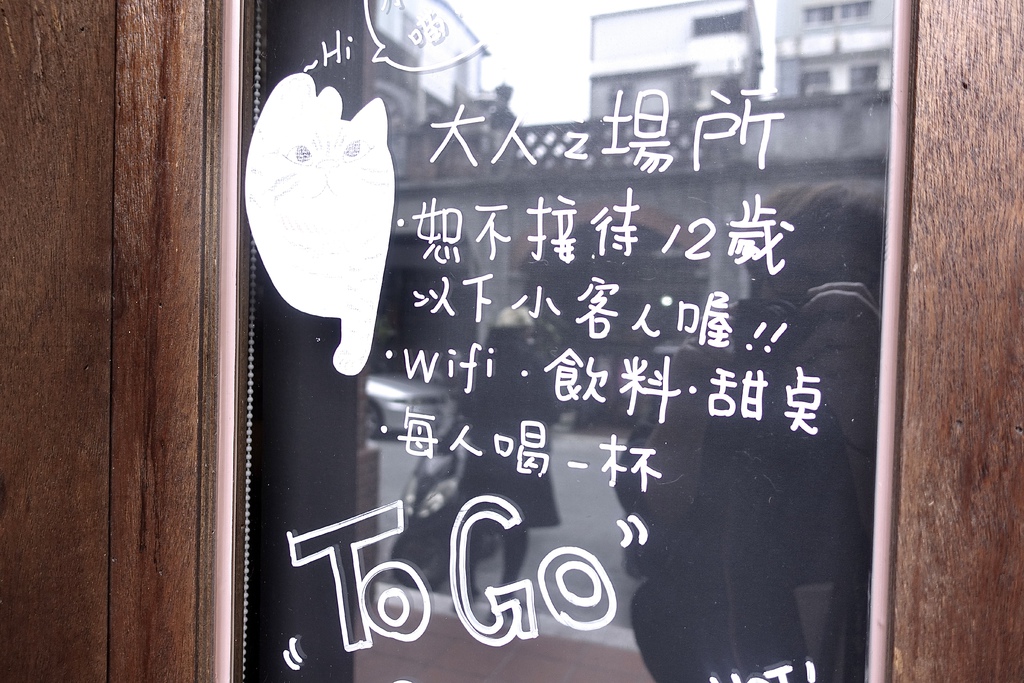 ~Hi
喲
大人之場所
·恕不接待12歲
以下小客人喔!!
·Wifi·飲料·甜桌
·每人喝一杯
"To Go"